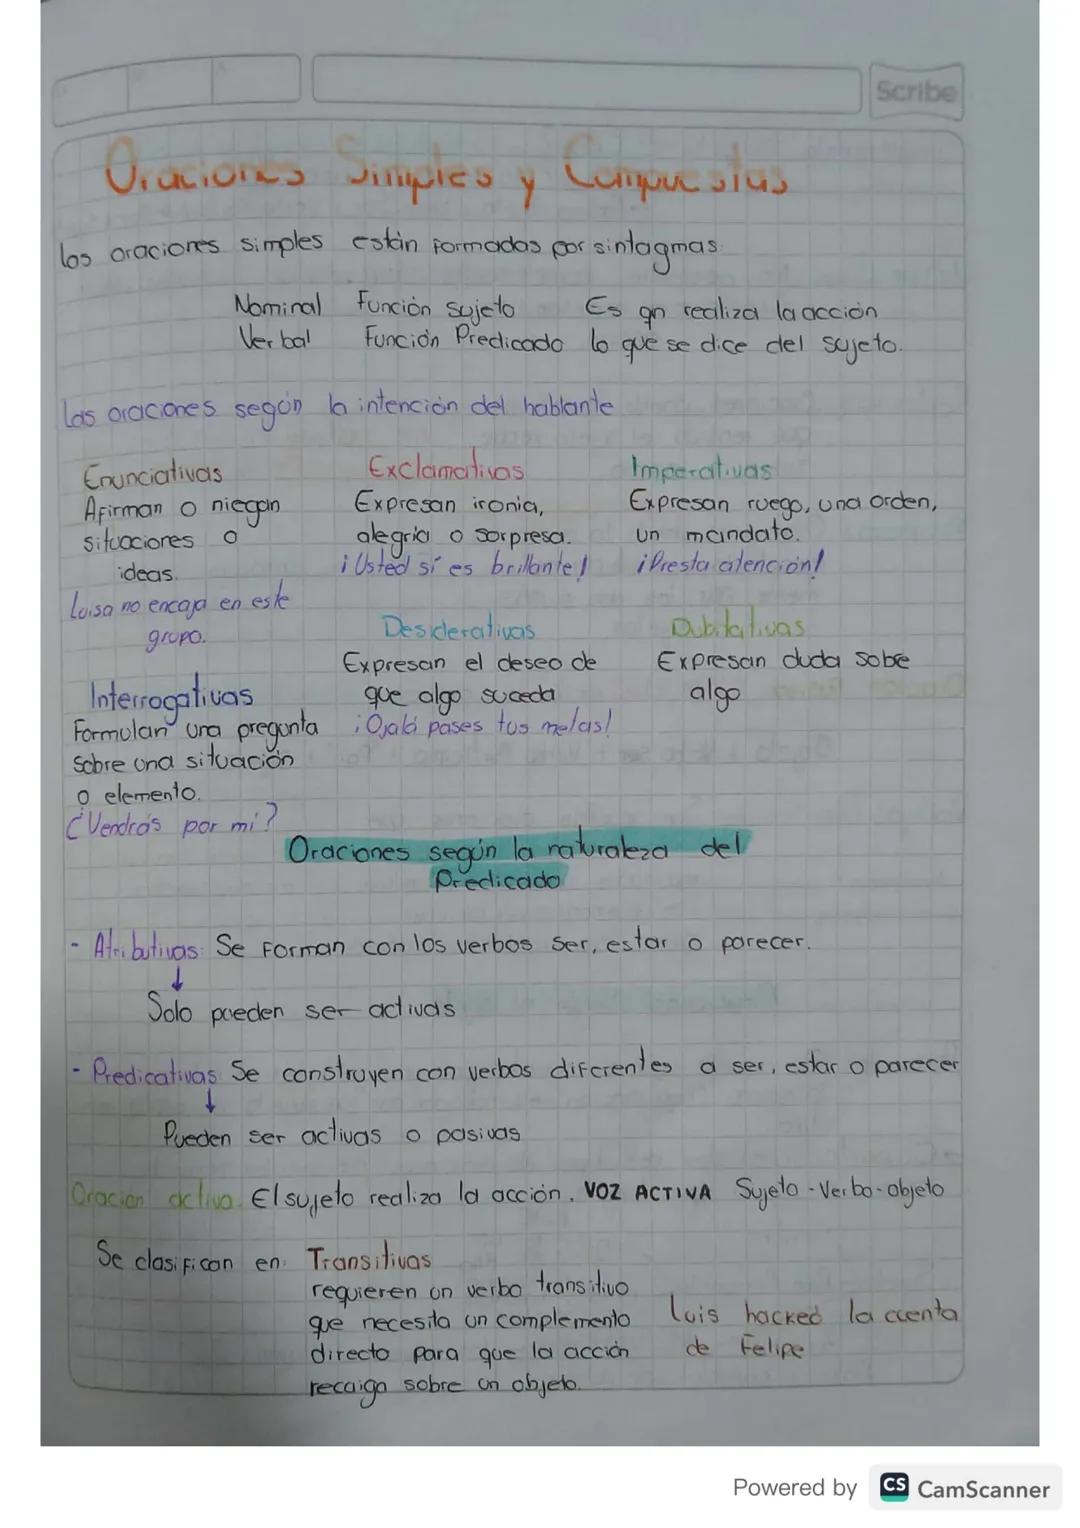 Scribe
Oraciones Simples y Compuestas
las oraciones simples están formadas por sintagmas:
Nominal Función sujeto Es qn realiza la acción
Verbal Función Predicado lo que se dice del sujeto.
Las oraciones según la intención del hablante
Enunciativas
Afirman o niegan
situaciones o
ideas.
Luisa no encaja en este
grupo.
Exclamativas
Expresan ironia,
alegria o sorpresa.
¡Usted sí es brillante!
Imperativas
Expresan ruego, una orden,
un mandato.
¡Presta atención!
Interrogativas
Formulan una pregunta
sobre una situación
o elemento.
¿Vendrás por mi?
Desiderativas
Expresan el deseo de
que algo suceda
¡Ojalá pases tus metas!
Dubitativas
Expresan duda sobre
algo
Oraciones según la naturaleza del
Predicado
- Atributivas: Se forman con los verbos ser, estar o parecer.
↓
Solo pueden ser activas
- Predicativas: Se construyen con verbos diferentes a ser, estar o parecer
↓
Pueden ser activas o pasivas
Oración activa. El sujeto realiza la acción. VOZ ACTIVA Sujeto - Verbo - objeto
Se clasifican en: Transitivas
requieren un verbo transitivo
que necesita un complemento
directo para que la acción
recaiga sobre un objeto.
Luis hackeó la cuenta
de Felipe
Powered by CS CamScanner